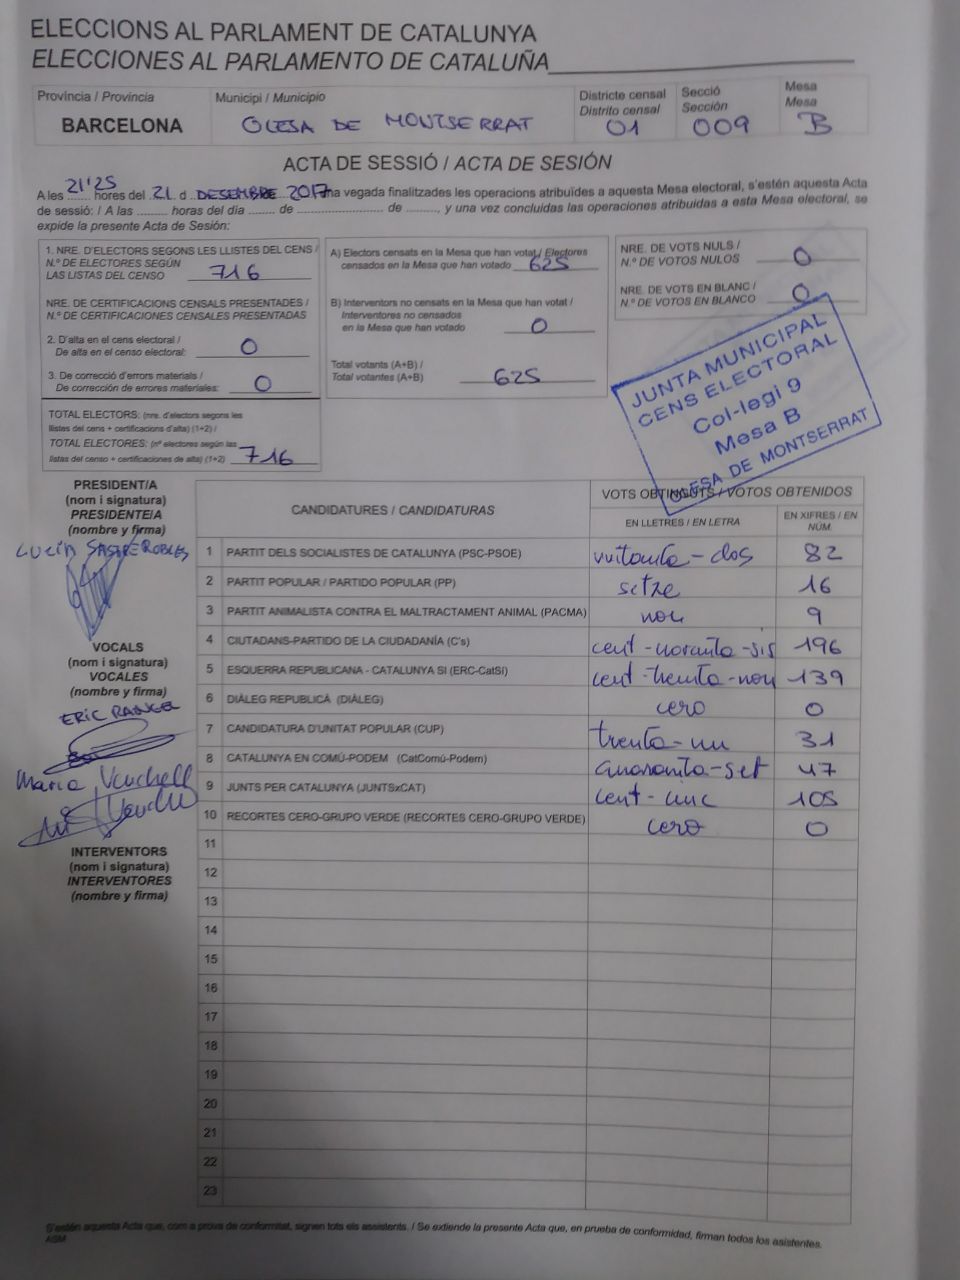 ELECCIONS AL PARLAMENT DE CATALUNYA
ELECCIONES AL PARLAMENTO DE CATALUÑA
Província / Provincia
BARCELONA
Municipi / Municipio
OLESA DE MONTSERRAT
Districte censal
Distrito censal
01
Secció
Sección
009
Mesa
Mesa
B
ACTA DE SESSIÓ / ACTA DE SESIÓN
A les 21'25 hores del 21 d DESEMBRE 2017 na vegada finalitzades les operacions atribuïdes a aquesta Mesa electoral, s'estén aquesta Acta
de sessió: / A las ......... horas del día ....... de ........................ de ........, y una vez concluidas las operaciones atribuidas a esta Mesa electoral, se
expide la presente Acta de Sesión:
1. NRE. D'ELECTORS SEGONS LES LLISTES DEL CENS /
N.º DE ELECTORES SEGÚN
LAS LISTAS DEL CENSO 716
NRE. DE CERTIFICACIONS CENSALS PRESENTADES /
N.º DE CERTIFICACIONES CENSALES PRESENTADAS
2. D'alta en el cens electoral /
De alta en el censo electoral: 0
3. De correcció d'errors materials /
De corrección de errores materiales: 0
TOTAL ELECTORS: (nre. d'electors segons les
llistes del cens + certificacions d'alta) (1+2) /
TOTAL ELECTORES: (nº electores según las
listas del censo + certificaciones de alta) (1+2) 716
A) Electors censats en la Mesa que han votat / Electores
censados en la Mesa que han votado 625
B) Interventors no censats en la Mesa que han votat /
Interventores no censados
en la Mesa que han votado 0
Total votants (A+B) /
Total votantes (A+B) 625
NRE. DE VOTS NULS /
N.º DE VOTOS NULOS 0
NRE. DE VOTS EN BLANC /
N.º DE VOTOS EN BLANCO 0
JUNTA MUNICIPAL
CENS ELECTORAL
Col·legi 9
Mesa B
OLESA DE MONTSERRAT
PRESIDENT/A
(nom i signatura)
PRESIDENTE/A
(nombre y firma)
SASTRE ROBLES
VOCALS
(nom i signatura)
VOCALES
(nombre y firma)
ERIC RANGEL
Maria
INTERVENTORS
(nom i signatura)
INTERVENTORES
(nombre y firma)
CANDIDATURES / CANDIDATURAS
VOTS OBTINGUTS / VOTOS OBTENIDOS
EN LLETRES / EN LETRA
EN XIFRES / EN NÚM.
1 PARTIT DELS SOCIALISTES DE CATALUNYA (PSC-PSOE) vuitanta-dos 82
2 PARTIT POPULAR / PARTIDO POPULAR (PP) setze 16
3 PARTIT ANIMALISTA CONTRA EL MALTRACTAMENT ANIMAL (PACMA) nou 9
4 CIUTADANS-PARTIDO DE LA CIUDADANÍA (C's) cent-noranta-sis 196
5 ESQUERRA REPUBLICANA - CATALUNYA SÍ (ERC-CatSí) cent-trenta-nou 139
6 DIÀLEG REPUBLICÀ (DIÀLEG) cero 0
7 CANDIDATURA D'UNITAT POPULAR (CUP) trenta-un 31
8 CATALUNYA EN COMÚ-PODEM (CatComú-Podem) quaranta-set 47
9 JUNTS PER CATALUNYA (JUNTSxCAT) cent-cinc 105
10 RECORTES CERO-GRUPO VERDE (RECORTES CERO-GRUPO VERDE) cero 0
11
12
13
14
15
16
17
18
19
20
21
22
23
S'estén aquesta Acta que, com a prova de conformitat, signen tots els assistents. / Se extiende la presente Acta que, en prueba de conformidad, firman todos los asistentes.
ASM